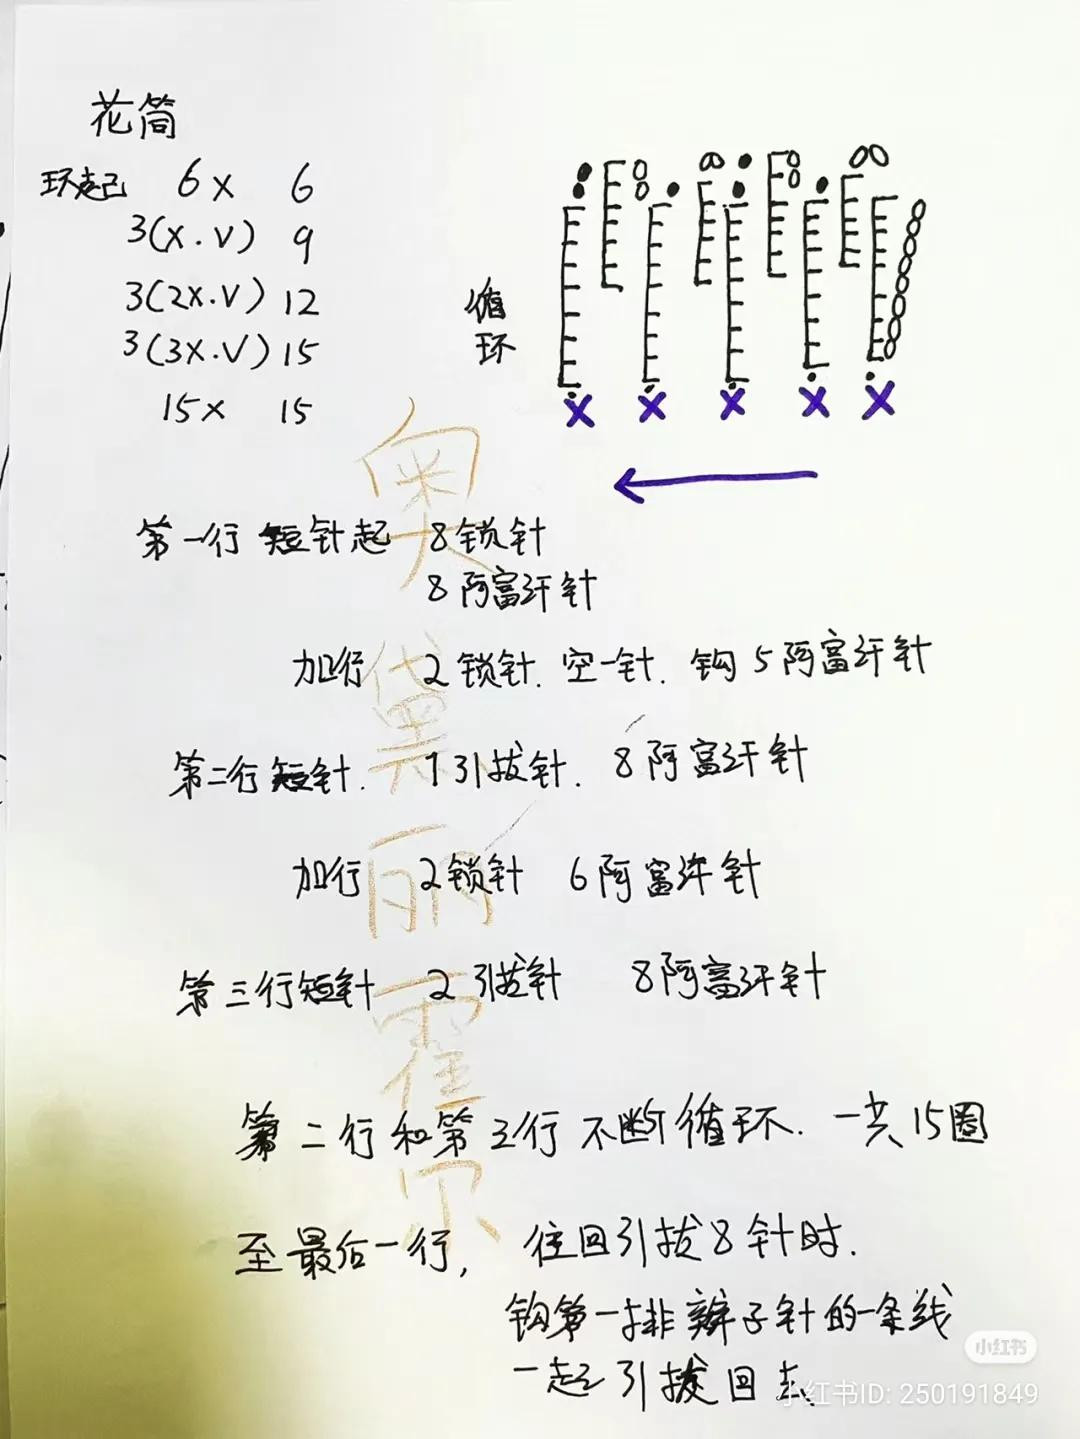 花筒
环起 6X 6
3(X.V) 9
3(2X.V) 12
3(3X.V) 15
15X 15
循
环
X X X X X
第一行 短针起 8锁针
8阿富汗针
加行 2锁针. 空一针. 钩5阿富汗针
第二行短针. 1引拔针. 8阿富汗针
加行 2锁针 6阿富汗针
第三行短针 2引拔针 8阿富汗针
第二行和第三行不断循环. 一共15圈
至最后一行, 往回引拔8针时.
钩第一排辫子针的一条线
一起引拔回去
奥黛丽霍尔
小红书
小红书ID: 250191849